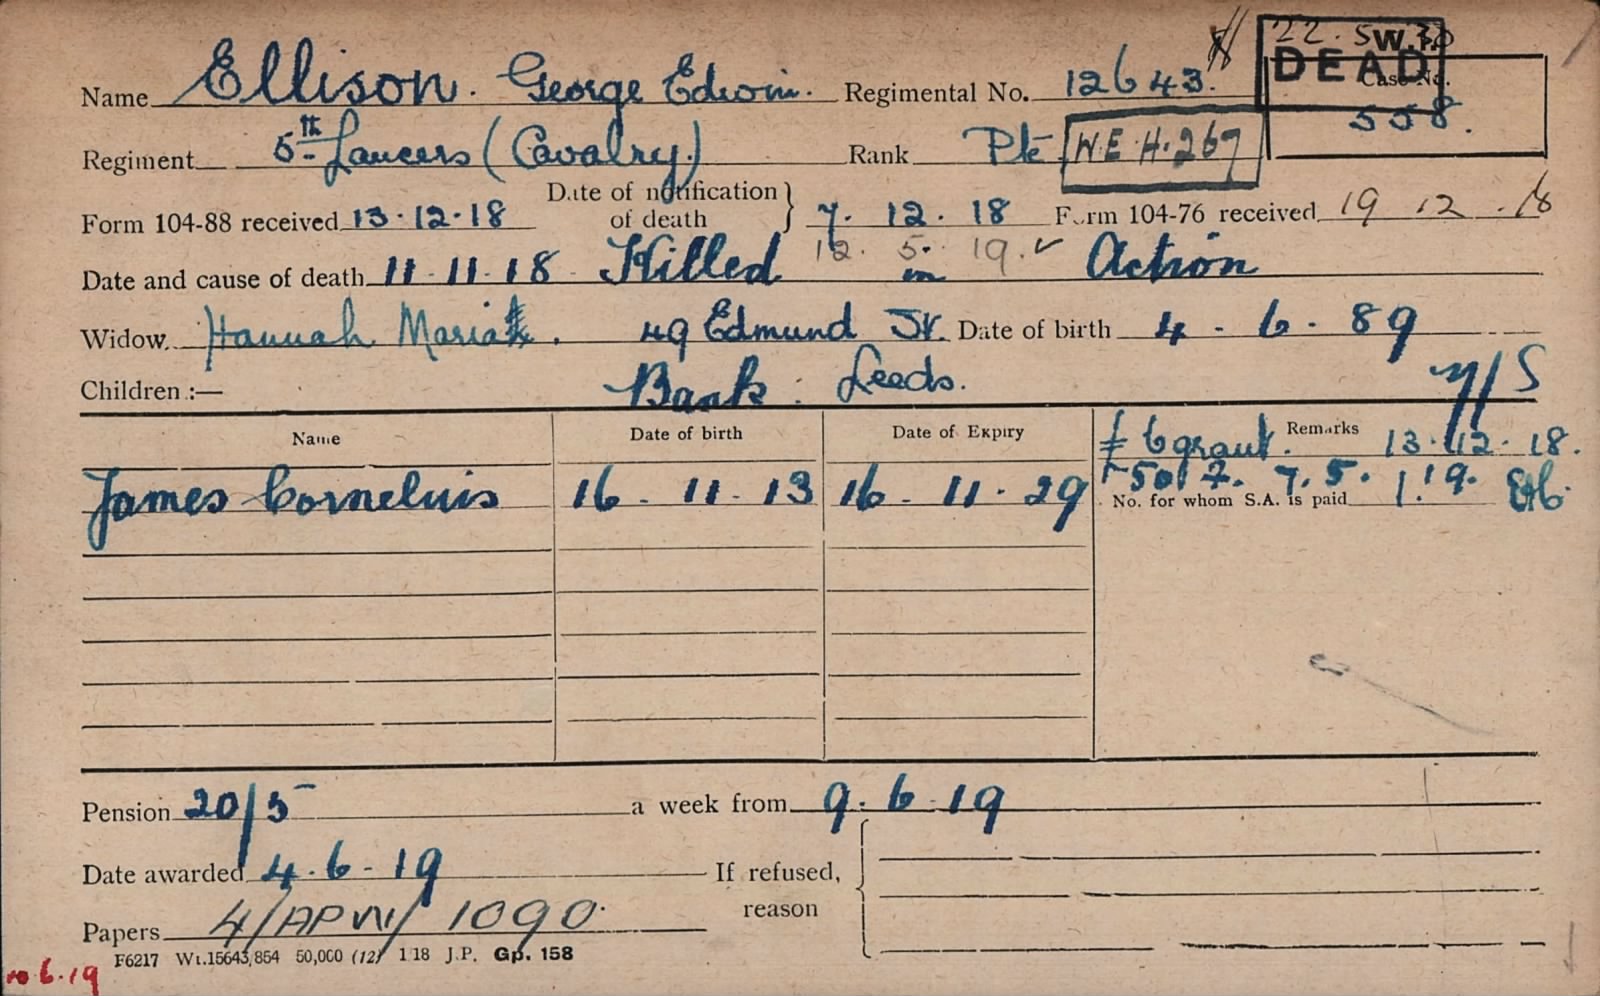 22. 5. 30
W.P.
DEAD
Name Ellison. George Edwin. Regimental No. 12643. Case No. 558.
Regiment 5th Lancers (Cavalry) Rank Pte W.E.H. 267
Form 104-88 received 13.12.18 Date of notification of death } 7. 12. 18 Form 104-76 received 19.12.18
12. 5. 19.✓
Date and cause of death 11-11-18 Killed in Action
Widow Hannah Maria. 49 Edmund St. Date of birth 4-6-89
Children :— Bank. Leeds. 7/S
Name Date of birth Date of Expiry Remarks
£6 grant. 13.12.18.
James Cornelius 16-11-13 16-11-29
7.5. 1.19.
No. for whom S.A. is paid
Pension 20/5 a week from 9.6.19
Date awarded 4.6-19 If refused, reason
Papers 4/APW/1090.
F6217 Wt.15643/854 50,000 (12) 1 18 J.P. Gp. 158
6.19